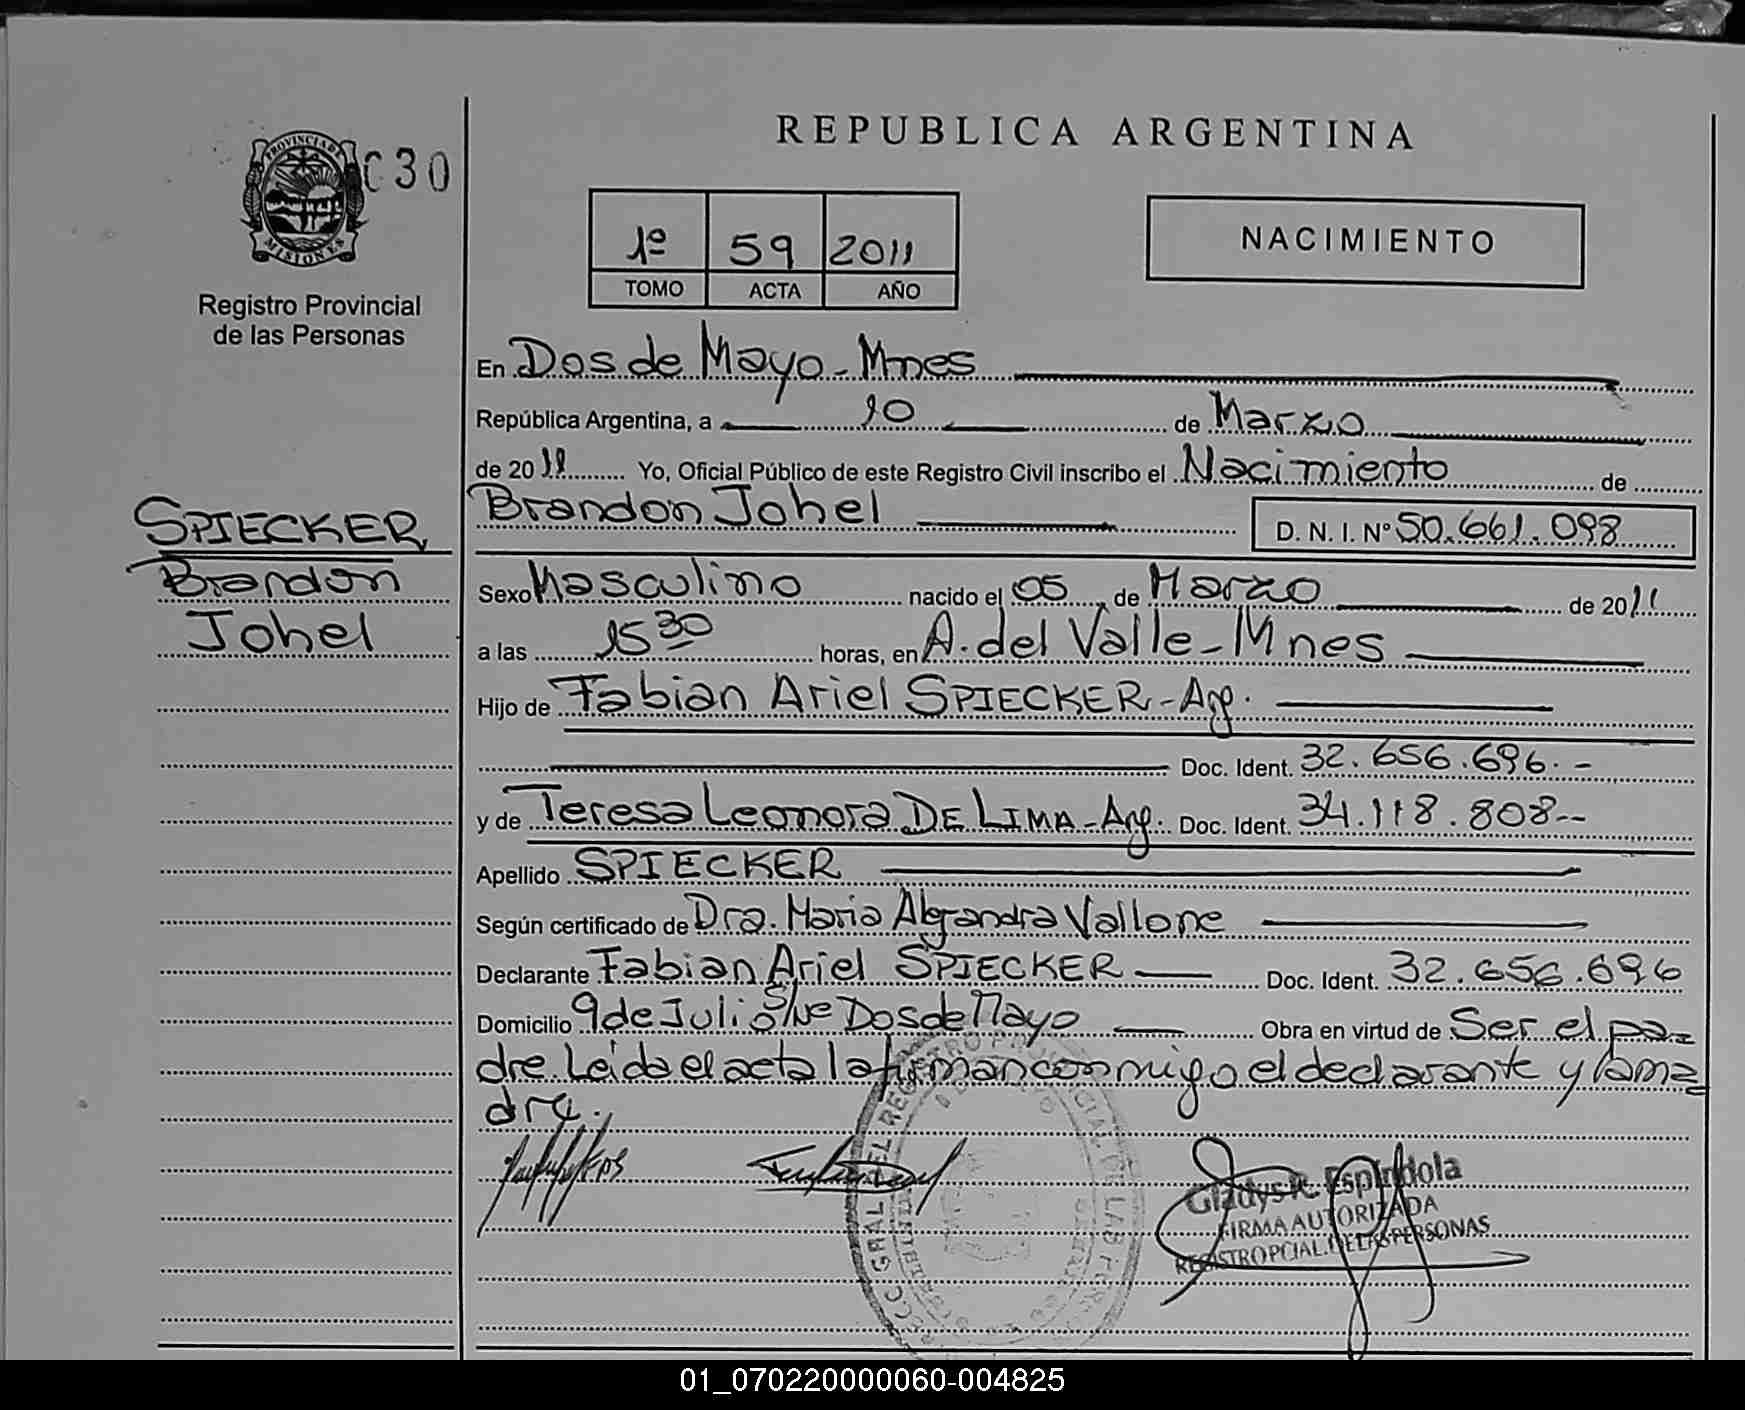 REPUBLICA ARGENTINA
PROVINCIA DE
MISIONES
C30
Registro Provincial
de las Personas
1º 59 2011
TOMO ACTA AÑO
NACIMIENTO
En Dos de Mayo - Mnes
República Argentina, a 10 de Marzo
de 20 11 Yo, Oficial Público de este Registro Civil inscribo el Nacimiento de
Brandon Johel D. N. I. Nº 50.661.098
SPIECKER
Brandon
Johel
Sexo Masculino nacido el 05 de Marzo de 20 11
a las 15 30 horas, en A. del Valle - Mnes
Hijo de Fabian Ariel SPIECKER - Arg.
Doc. Ident. 32.656.696. -
y de Teresa Leonora DE LIMA - Arg. Doc. Ident. 34.118.808--
Apellido SPIECKER
Según certificado de Dra. Maria Alejandra Vallone
Declarante Fabian Ariel SPIECKER Doc. Ident. 32.656.696
Domicilio 9 de Julio S/Nº Dos de Mayo Obra en virtud de Ser el pa-
dre. Leida el acta la firman conmigo el declarante y la ma=
dre.
Gladys R. Espindola
FIRMA AUTORIZADA
REGISTRO PCIAL. DE LAS PERSONAS
01_070220000060-004825